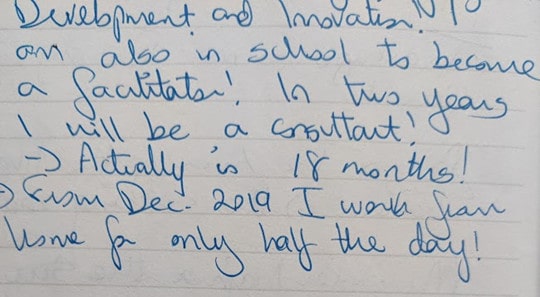 Development and Innovation!
am also in school to become
a facilitator! In two years
I will be a consultant!
-> Actually is 18 months!
-> From Dec. 2019 I work from
home for only half the day!